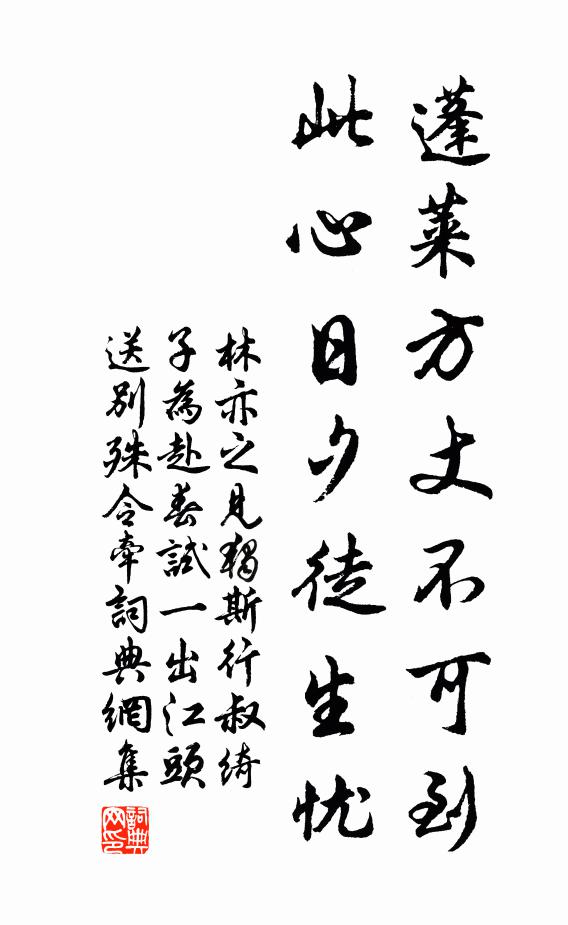 蓬萊方丈不可到
此心日夕徒生忧
林亦之見獨斯行叔綺
子為赴春試一出江頭
送別殊令牽詞典網集
詞典
网印